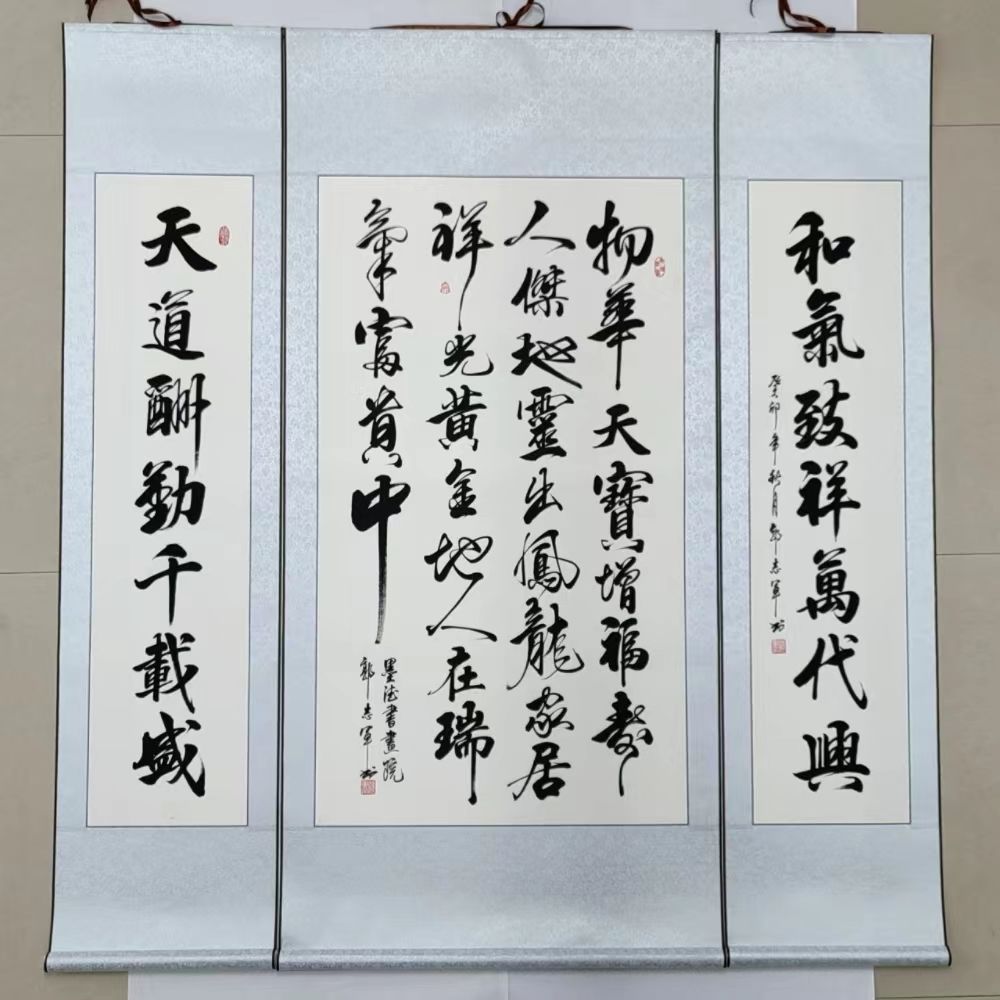 和氣致祥萬代興
癸卯年秋月郭志軍书
物華天寶增福壽
人傑地靈出鳳龍家居
祥光黄金地人在瑞
氣富貴中
墨書畫院
郭志軍书
天道酬勤千載盛